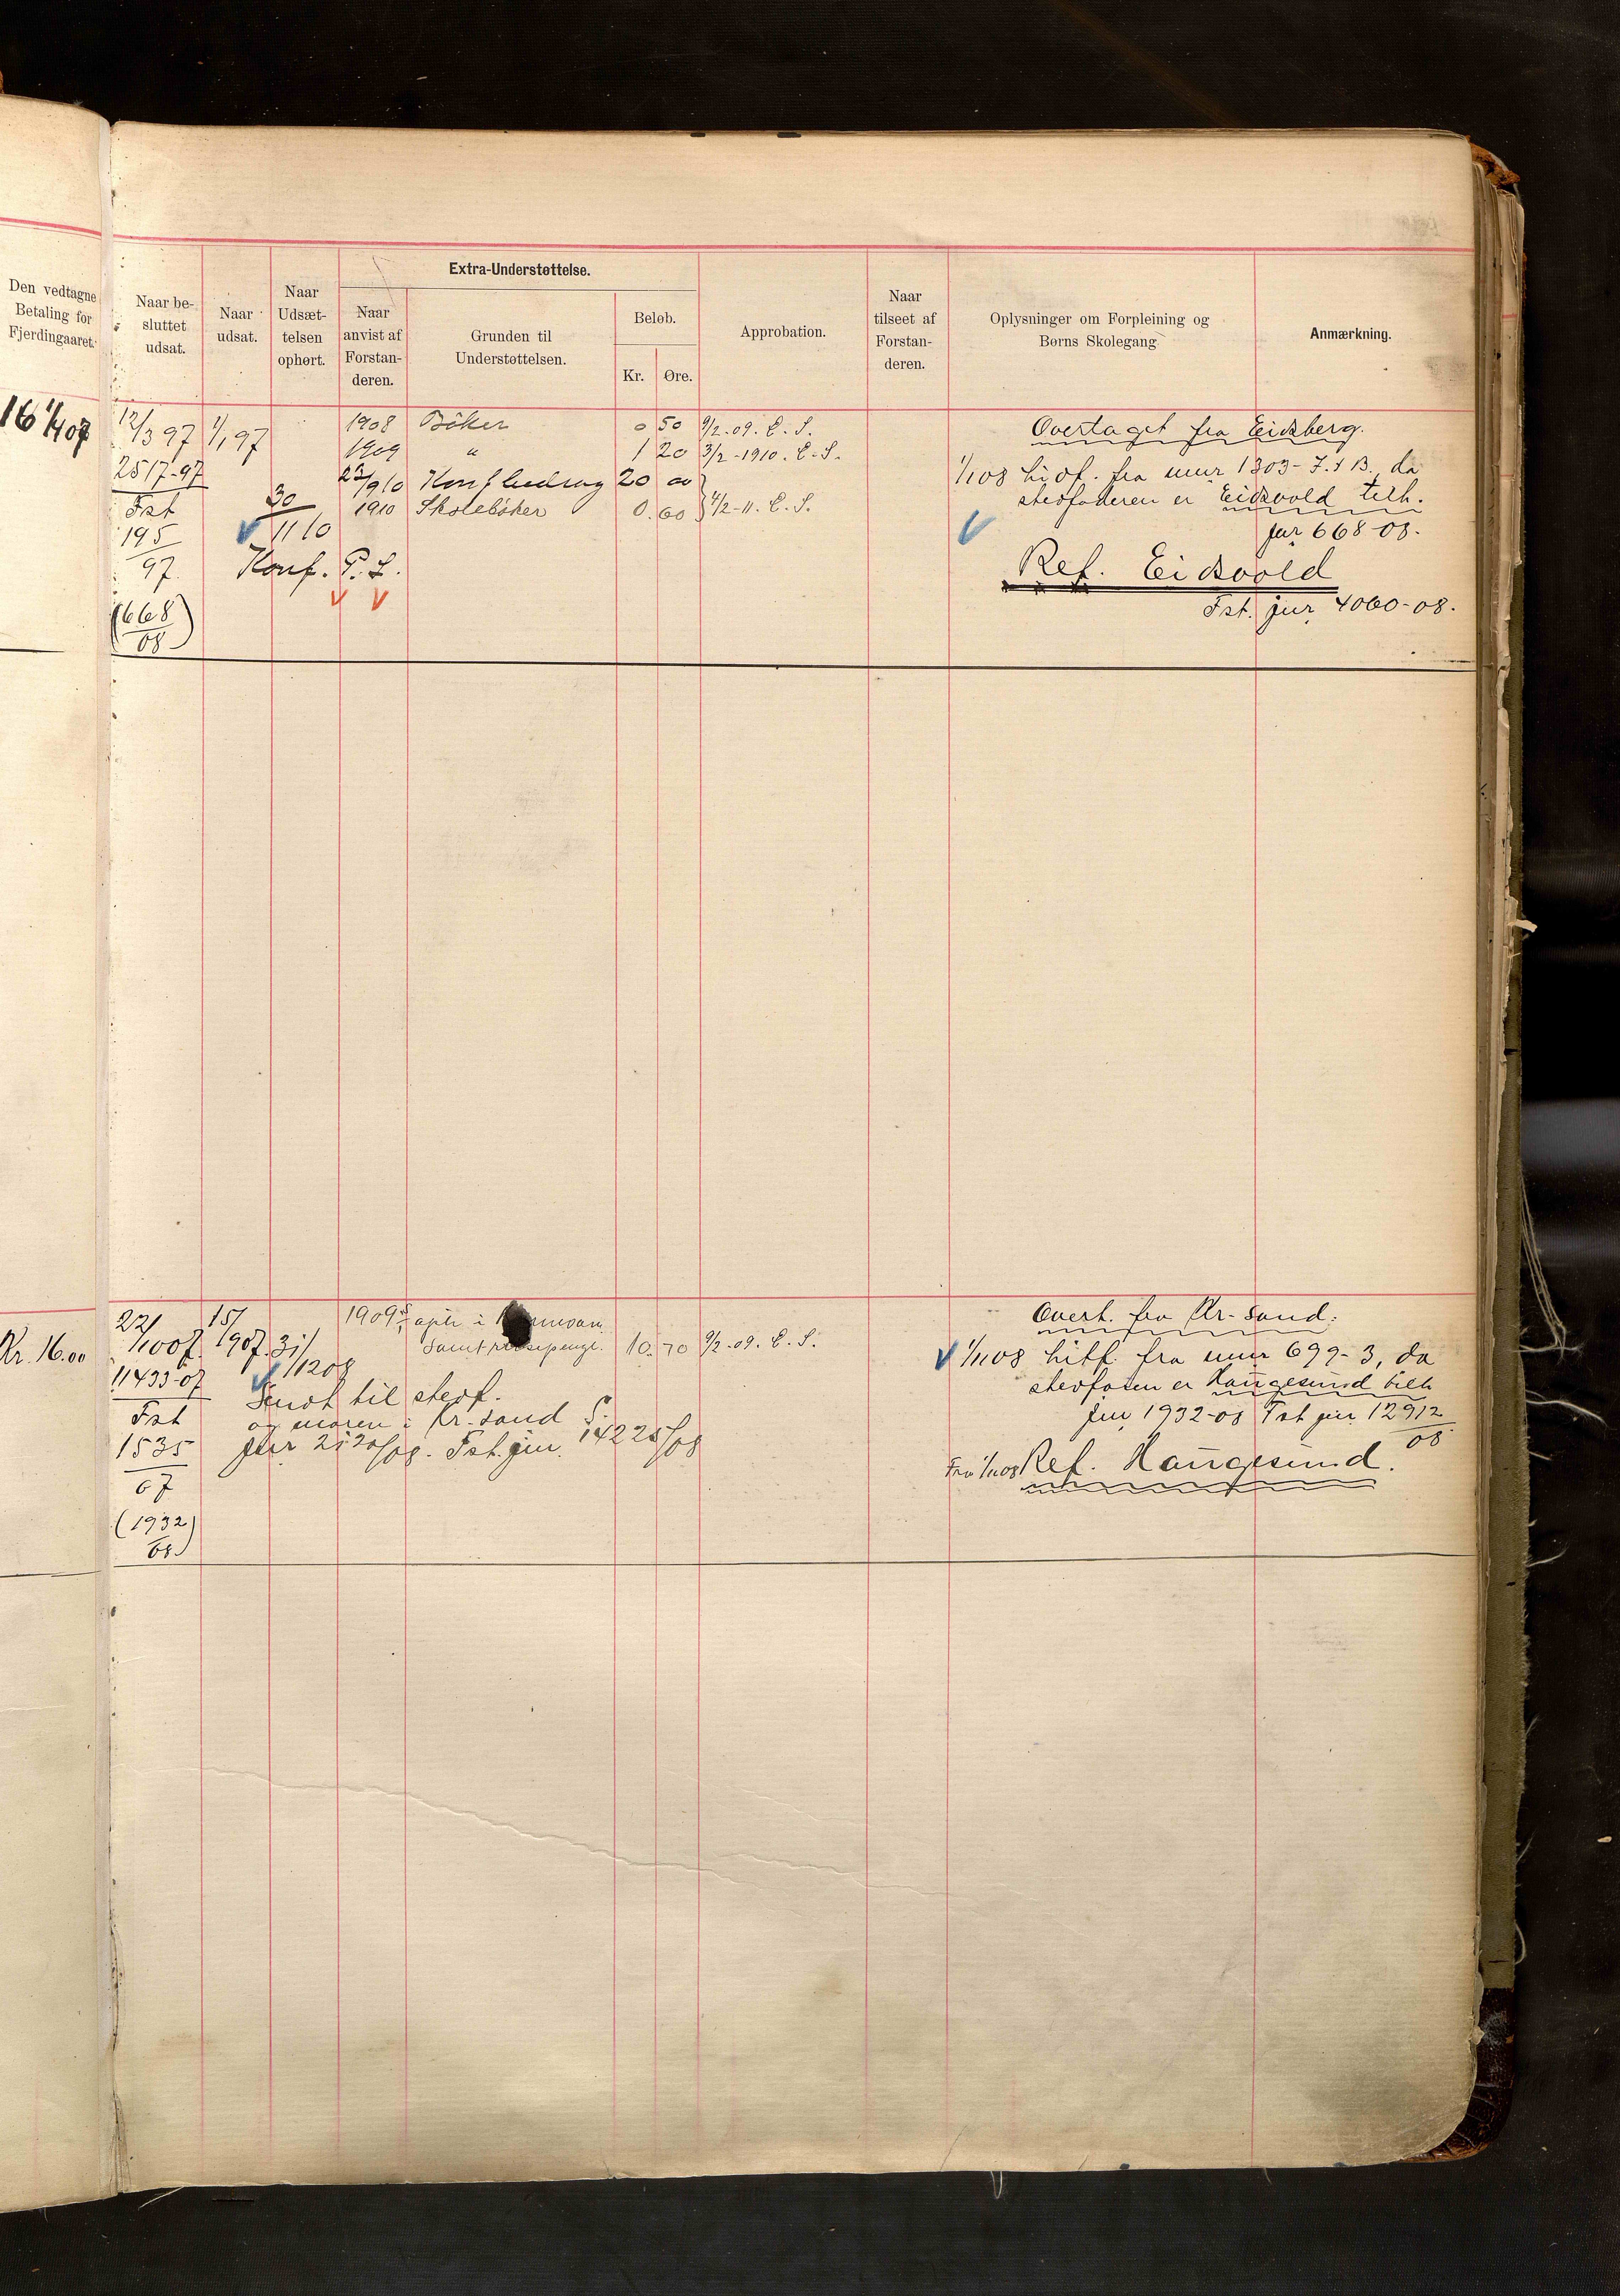 Den vedtagne
Betaling for
Fjerdingaaret.
Naar be-
sluttet
udsat.
Naar
udsat.
Naar
Udsæt-
telsen
ophørt.
Extra-Understøttelse.
Naar
anvist af
Forstan-
deren.
Grunden til
Understøttelsen.
Beløb.
Kr.
Øre.
Approbation.
Naar
tilseet af
Forstan-
deren.
Oplysninger om Forpleining og
Børns Skolegang
Anmærkning.
16 1/4 07
12/3 97 1/1 97
2517-97
Fst
195
97.
(668)
08
30
11 10
Konf. P. L.
1908 Böker 0 50 9/2-09. E. S.
1909 " 1 20 3/2-1910. E. S.
23/9 10 Konf bidrag 20 00
1910 Skolebøker 0.60 4/2-11. E. S.
Overtaget fra Eidsberg.
1/1 08 hidf. fra mur 1303- J. & B. da
stedfaderen er Eidsvold tilh.
jur 668-08.
Ref. Eidsvold
Fst. jur. 4060-08.
Kr. 16.00
22/10 07. 15/ 1907.
11433-07
Fst
1535
07
(1932)
08
31/12 08
Sendt til stedf.
og moren i Kr. sand
jur 2120/08. Fst. jur. 14225/08
1909
samt reisepenge. 10.70 9/2-09. E. S.
Overt. fra Kr-sand.
1/11 08 hitf. fra mur 699-3, da
stedfaren er Haugesund tilh
jur 1932-08 Fst jur 12912
08
Fra 1/11 08 Ref. Haugesund.